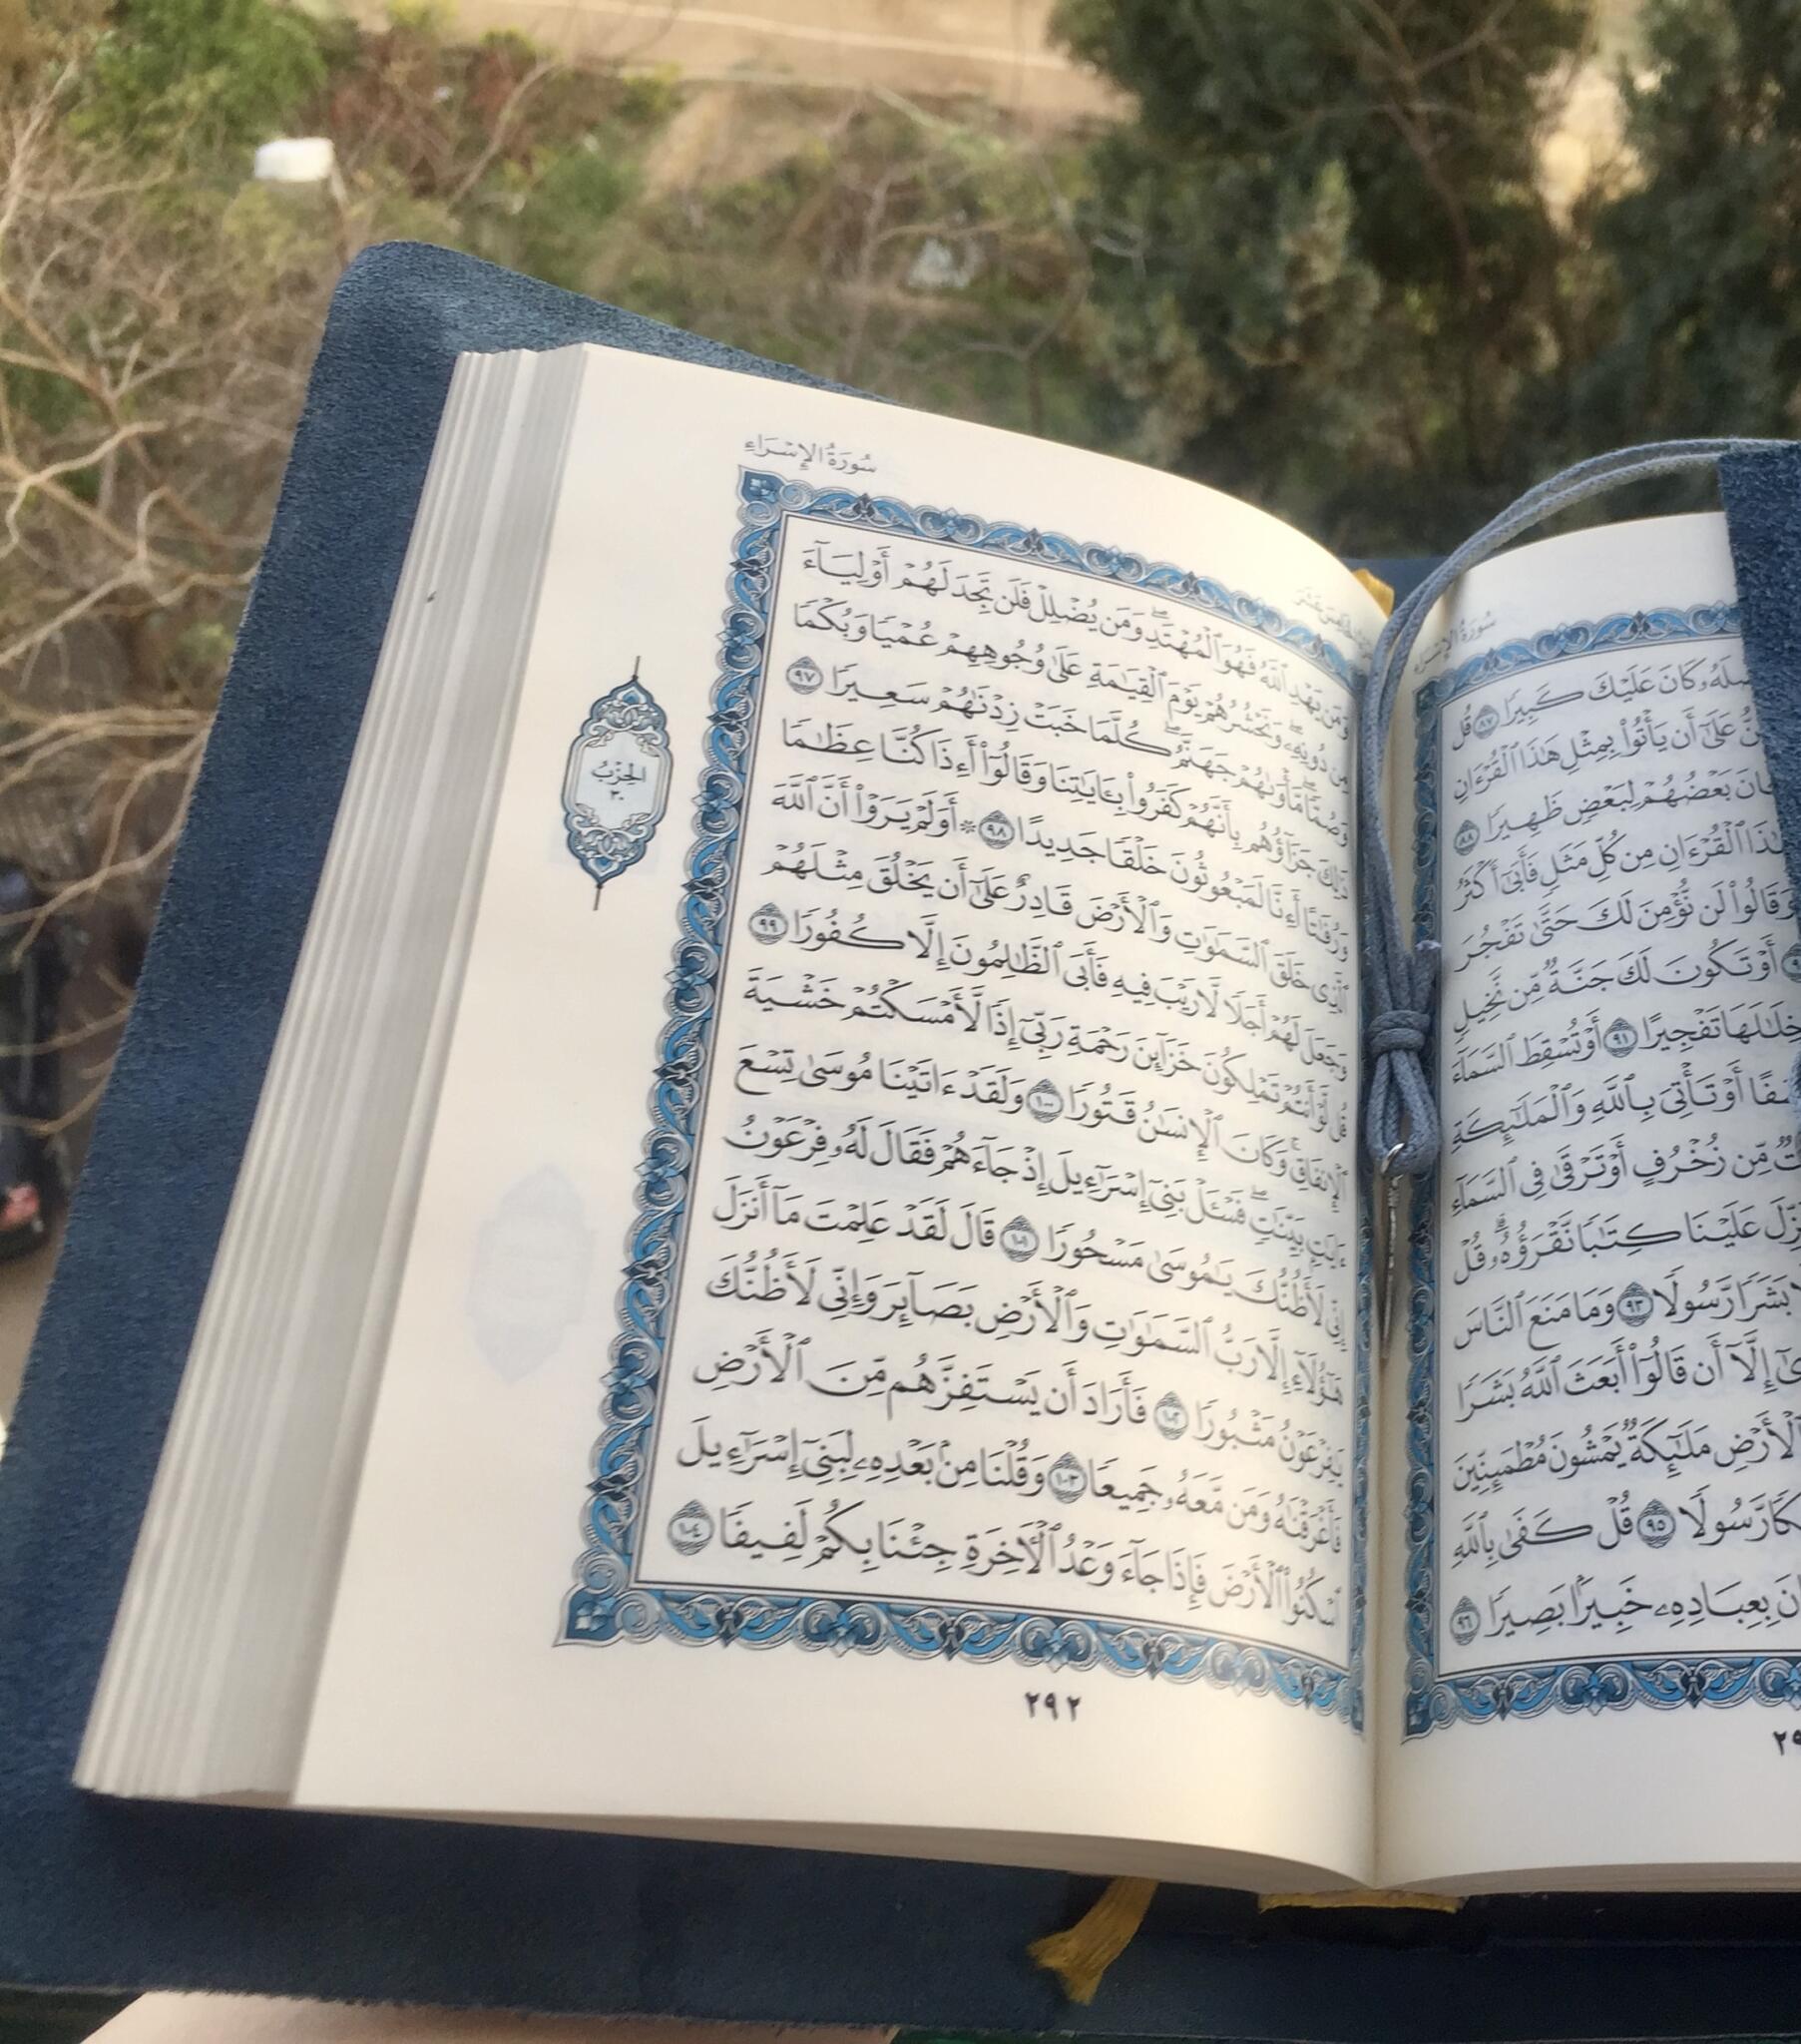 سُورَةُ الإِسْرَاءِ
وَمَن يَهْدِ ٱللَّهُ فَهُوَ ٱلْمُهْتَدِۖ وَمَن يُضْلِلْ فَلَن تَجِدَ لَهُمْ أَوْلِيَآءَ
مِن دُونِهِۦۖ وَنَحْشُرُهُمْ يَوْمَ ٱلْقِيَٰمَةِ عَلَىٰ وُجُوهِهِمْ عُمْيًا وَبُكْمًا
وَصُمًّاۖ مَّأْوَىٰهُمْ جَهَنَّمُۖ كُلَّمَا خَبَتْ زِدْنَٰهُمْ سَعِيرًا ٩٧
ذَٰلِكَ جَزَآؤُهُم بِأَنَّهُمْ كَفَرُواْ بِـَٔايَٰتِنَا وَقَالُوٓاْ أَءِذَا كُنَّا عِظَٰمًا
وَرُفَٰتًا أَءِنَّا لَمَبْعُوثُونَ خَلْقًا جَدِيدًا ٩٨ ۞ أَوَلَمْ يَرَوْاْ أَنَّ ٱللَّهَ
ٱلَّذِى خَلَقَ ٱلسَّمَٰوَٰتِ وَٱلْأَرْضَ قَادِرٌ عَلَىٰٓ أَن يَخْلُقَ مِثْلَهُمْ
وَجَعَلَ لَهُمْ أَجَلًا لَّا رَيْبَ فِيهِ فَأَبَى ٱلظَّٰلِمُونَ إِلَّا كُفُورًا ٩٩
قُل لَّوْ أَنتُمْ تَمْلِكُونَ خَزَآئِنَ رَحْمَةِ رَبِّىٓ إِذًا لَّأَمْسَكْتُمْ خَشْيَةَ
ٱلْإِنفَاقِۚ وَكَانَ ٱلْإِنسَٰنُ قَتُورًا ١٠٠ وَلَقَدْ ءَاتَيْنَا مُوسَىٰ تِسْعَ
ءَايَٰتٍۭ بَيِّنَٰتٍۖ فَسْـَٔلْ بَنِىٓ إِسْرَٰٓءِيلَ إِذْ جَآءَهُمْ فَقَالَ لَهُۥ فِرْعَوْنُ
إِنِّى لَأَظُنُّكَ يَٰمُوسَىٰ مَسْحُورًا ١٠١ قَالَ لَقَدْ عَلِمْتَ مَآ أَنزَلَ
هَٰٓؤُلَآءِ إِلَّا رَبُّ ٱلسَّمَٰوَٰتِ وَٱلْأَرْضِ بَصَآئِرَ وَإِنِّى لَأَظُنُّكَ
يَٰفِرْعَوْنُ مَثْبُورًا ١٠٢ فَأَرَادَ أَن يَسْتَفِزَّهُم مِّنَ ٱلْأَرْضِ
فَأَغْرَقْنَٰهُ وَمَن مَّعَهُۥ جَمِيعًا ١٠٣ وَقُلْنَا مِنۢ بَعْدِهِۦ لِبَنِىٓ إِسْرَٰٓءِيلَ
ٱسْكُنُواْ ٱلْأَرْضَ فَإِذَا جَآءَ وَعْدُ ٱلْءَاخِرَةِ جِئْنَا بِكُمْ لَفِيفًا ١٠٤
٢٩٢
الحِزْبُ
٣٠
سُورَةُ
كَانَ عَلَيْكَ كَبِيرًا ٨٧ قُل
عَلَىٰٓ أَن يَأْتُواْ بِمِثْلِ هَٰذَا ٱلْقُرْءَانِ
بَعْضُهُمْ لِبَعْضٍ ظَهِيرًا ٨٨
ٱلْقُرْءَانِ مِن كُلِّ مَثَلٍ فَأَبَىٰٓ أَكْثَرُ
وَقَالُواْ لَن نُّؤْمِنَ لَكَ حَتَّىٰ تَفْجُرَ
أَوْ تَكُونَ لَكَ جَنَّةٌ مِّن نَّخِيلٍ
تَفْجِيرًا ٩١ أَوْ تُسْقِطَ ٱلسَّمَآءَ
أَوْ تَأْتِىَ بِٱللَّهِ وَٱلْمَلَٰٓئِكَةِ
مِّن زُخْرُفٍ أَوْ تَرْقَىٰ فِى ٱلسَّمَآءِ
عَلَيْنَا كِتَٰبًا نَّقْرَؤُهُۥۗ قُلْ
بَشَرًا رَّسُولًا ٩٣ وَمَا مَنَعَ ٱلنَّاسَ
إِلَّآ أَن قَالُوٓاْ أَبَعَثَ ٱللَّهُ بَشَرًا
ٱلْأَرْضِ مَلَٰٓئِكَةٌ يَمْشُونَ مُطْمَئِنِّينَ
رَّسُولًا ٩٥ قُلْ كَفَىٰ بِٱللَّهِ
بِعِبَادِهِۦ خَبِيرًۢا بَصِيرًا ٩٦